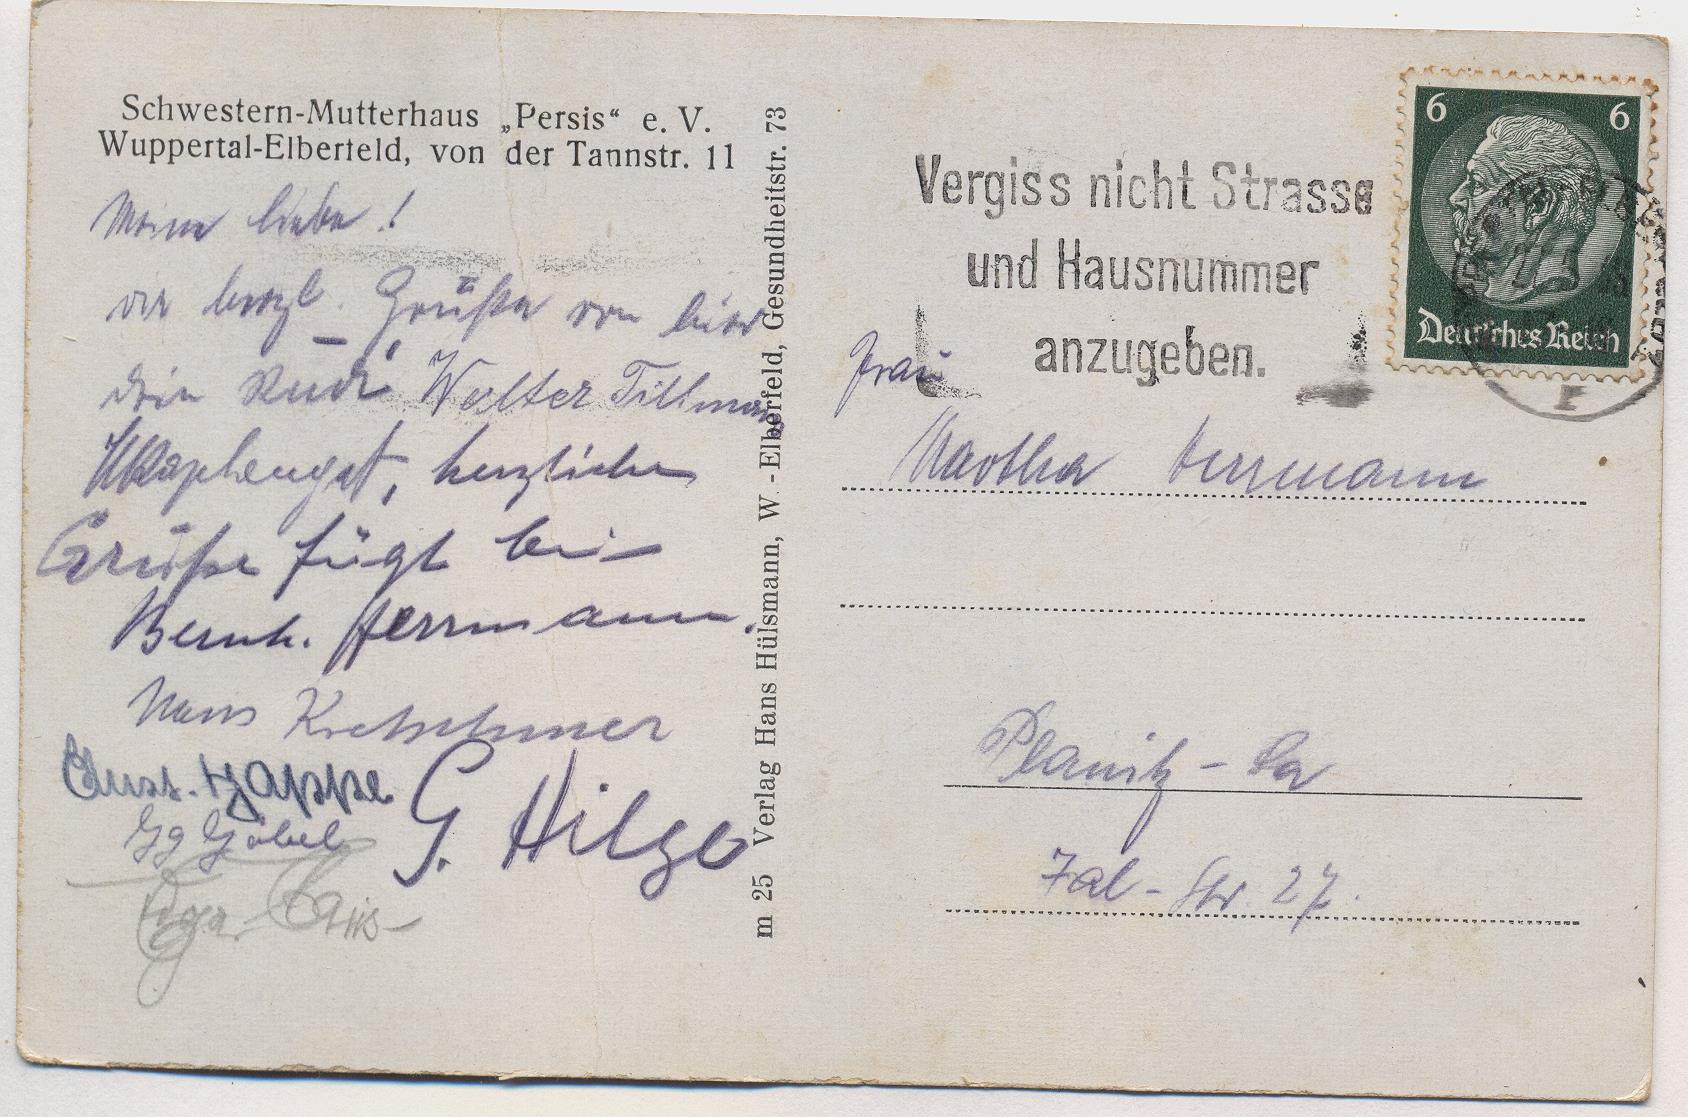 Schwestern-Mutterhaus „Persis“ e. V.
Wuppertal-Elberfeld, von der Tannstr. 11
Meine liebe!
die herzl. Grüße von hier
dein Rudi Walter Tillmann
herzliche
Grüße fügt bei
Bernh. Herrmann.
Hans Kretschmer
Aust. Happe
Gg Göbel G. Hilge
m 25 Verlag Hans Hülsmann, W.-Elberfeld, Gesundheitstr. 73
Vergiss nicht Strasse
und Hausnummer
anzugeben.
6 6
Deutsches Reich
Frau
Martha Herrmann
Planitz - Sa
Tal - Str. 27.